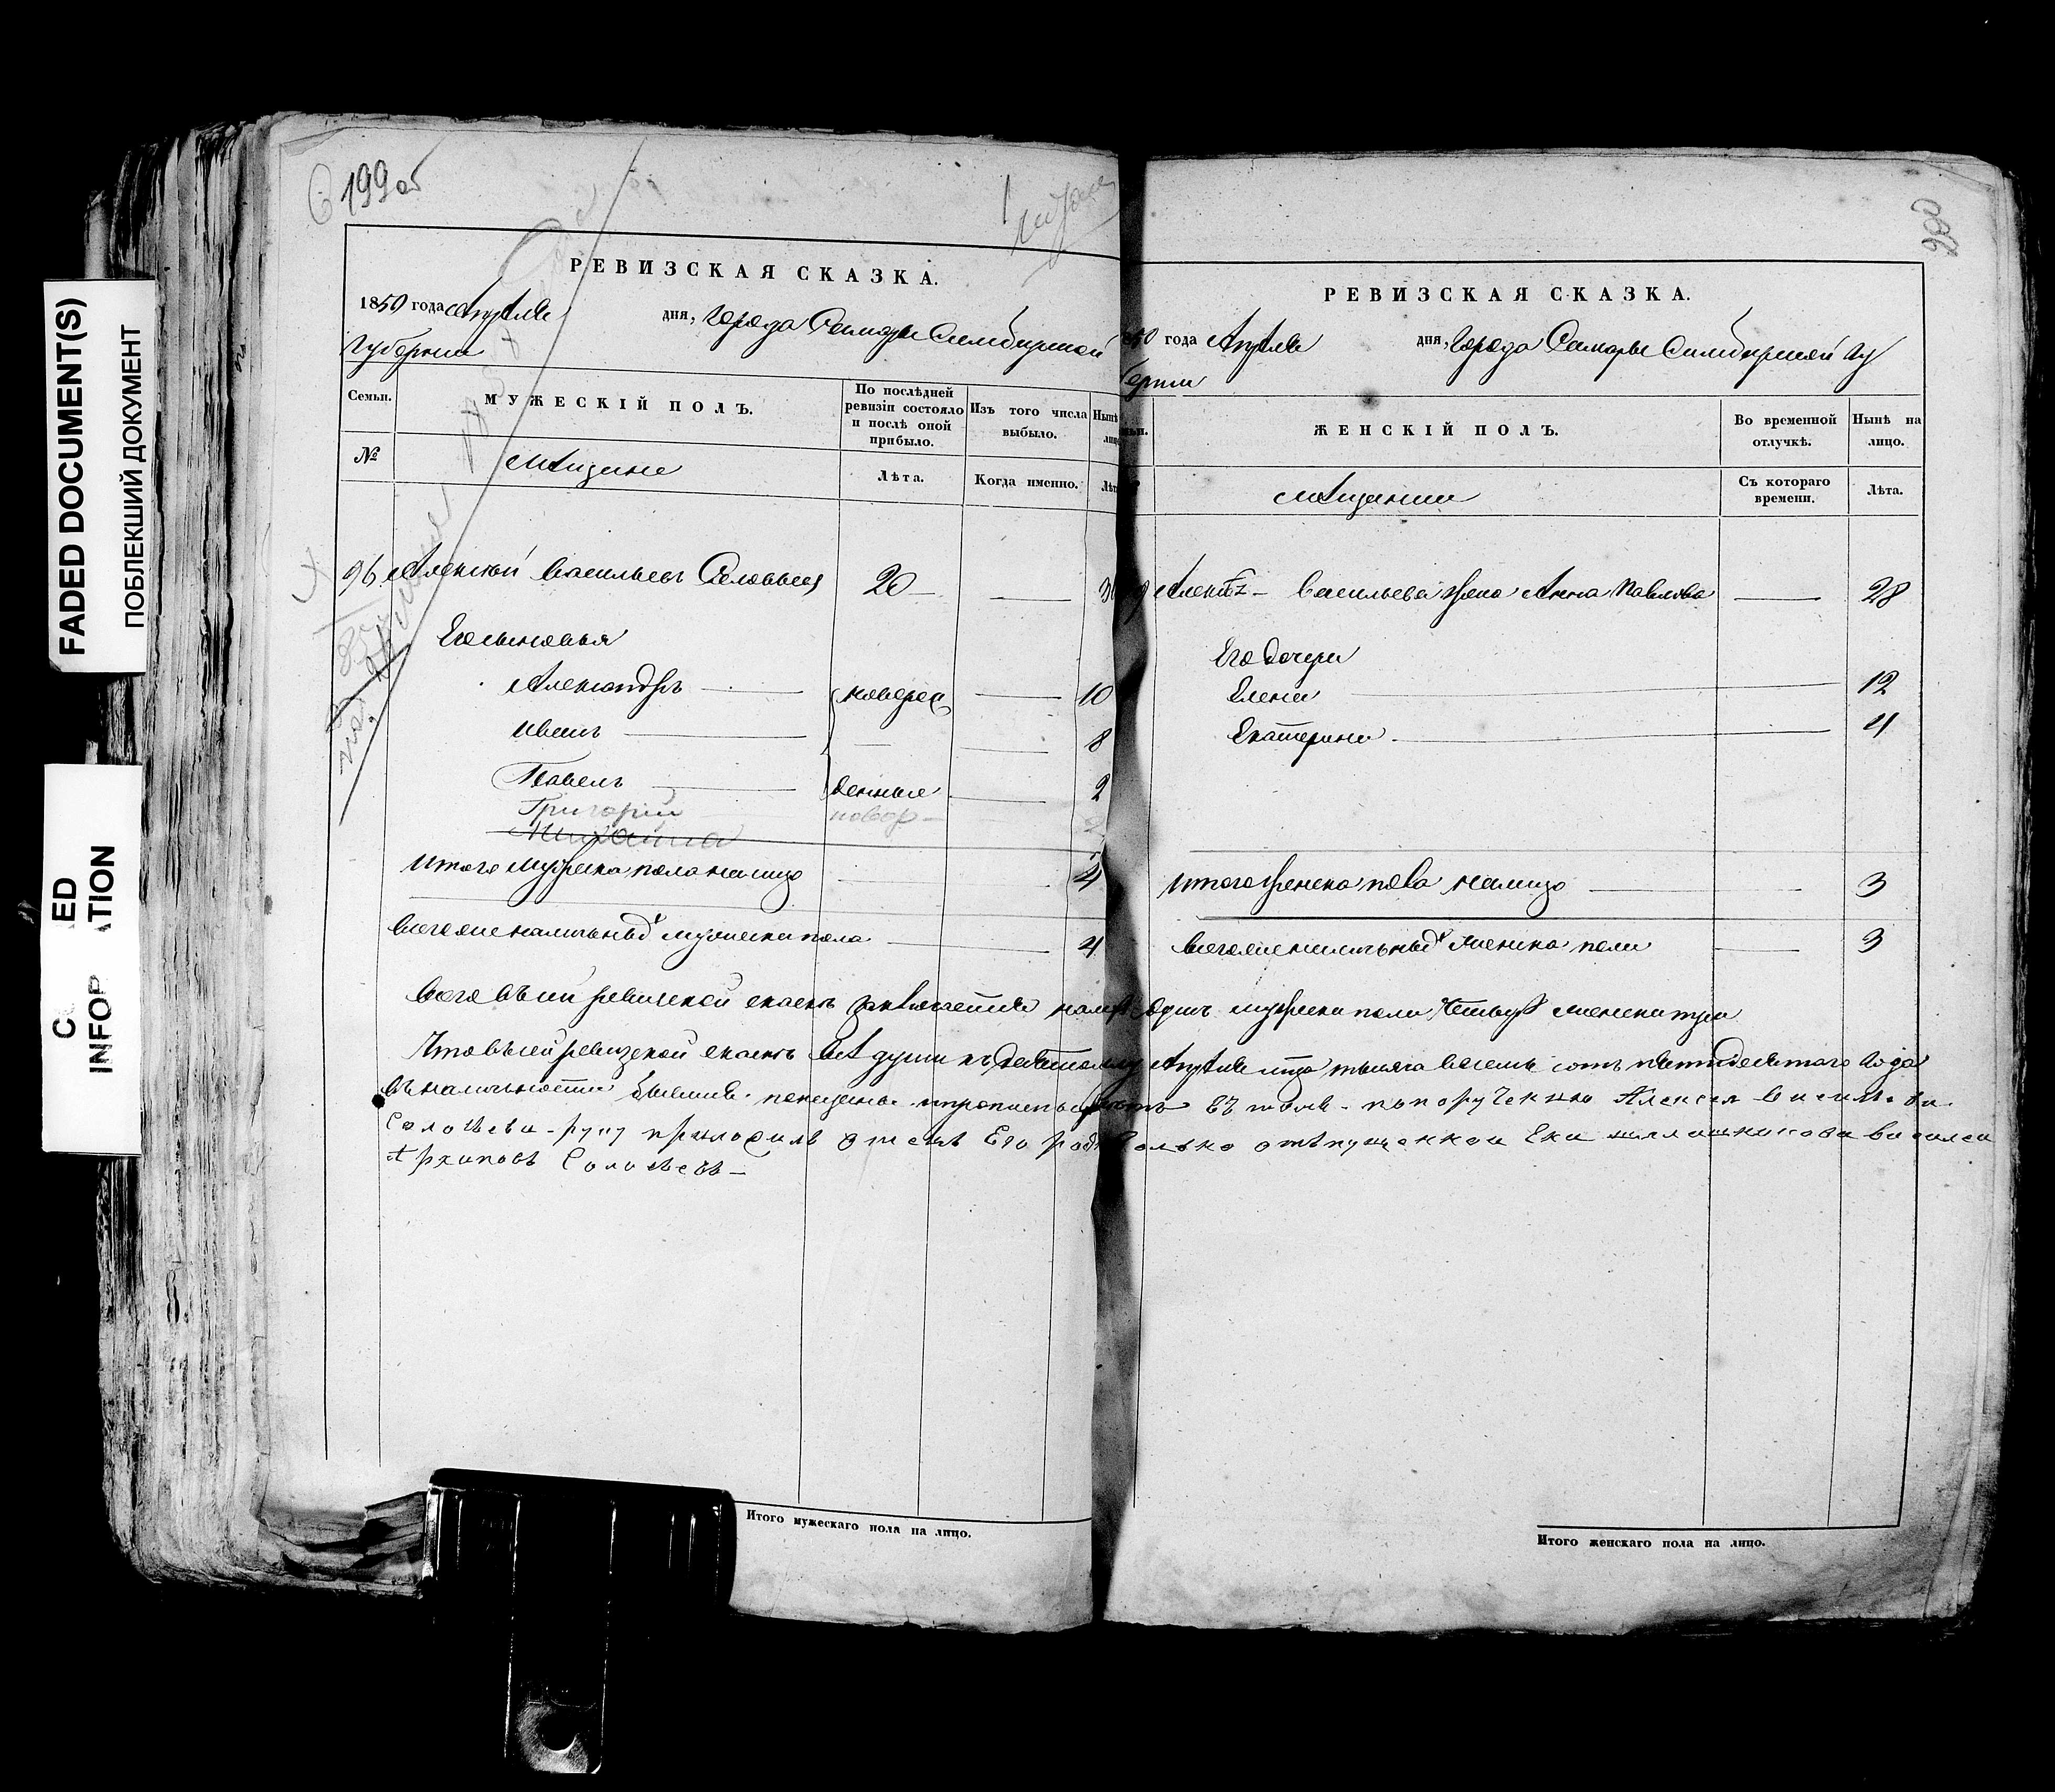 FADED DOCUMENT(S)
ПОБЛЕКШИЙ ДОКУМЕНТ
ED
ATION
INFOR
199 об
РЕВИЗСКАЯ СКАЗКА.
1850 года Апреля дня, Города Самары Симбирской
Губернии
Семьи.
МУЖЕСКІЙ ПОЛЪ.
По послѣдней ревизіи состояло и послѣ оной прибыло.
Изъ того числа выбыло.
Нынѣ
№
Мещане
Лѣта.
Когда именно.
Лѣт
96 Алексей Васильевъ Соловьев 20 — —
Его сыновья
Александръ — новорож — 10
Иванъ — — — 8
Павелъ — денные — 2
Григорий новор —
Михайла
Итого мужеска пола на лицо — 4
Всего же наличныхъ мужеска пола — 4
Итого мужескаго пола на лицо.
200
РЕВИЗСКАЯ СКАЗКА.
50 года Апреля дня, Города Самары Симбирской Гу
бернии
ЖЕНСКІЙ ПОЛЪ.
Во временной отлучкѣ.
Нынѣ на лицо.
Мещанки
Съ котораго времени.
Лѣта.
Васильева жена Анна Павлова — 28
Его дочери
Елена — 12
Екатерина — 4
Итого женска пола на лицо — 3
Всего же наличныхъ женска пола — 3
Всего въ сей ревизской сказке заключается мужеска пола четыре женска три
Что въ сей ревизской сказке все души къ Апреля тысяча восемь сотъ пятидесятого года
въ наличности въ томъ по порученію Алексея Василева
Соловьева руку приложилъ отецъ Его Василеи
Архиповъ Соловьевъ —
Итого женскаго пола на лицо.